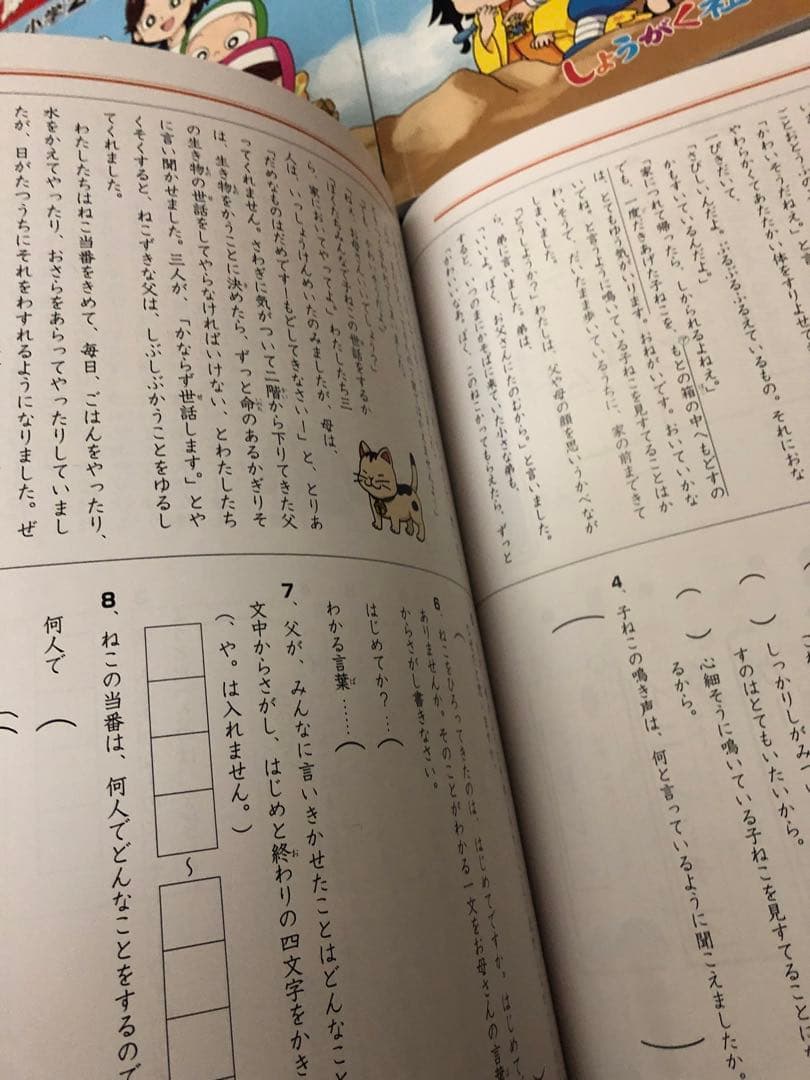 小学2
しょうがく社
ごとおとうふ
「かわいそうだねえ。」と言
一ぴきだいて、
やわらかくてあたたかい体をすりよせて
「さびしいんだよ。ぶるぶるふるえているもの。それにおな
かもすいているんだよ。」
「家につれて帰ったら、しかられるよねえ。」
でも、一度だきあげた子ねこを、もとの箱の中へもどすの
は、とてもゆう気がいります。おねがいです。おいていかな
いでね。と言うように鳴いている子ねこを見すてることはか
わいそうで、だいたまま歩いているうちに、家の前まできて
しまいました。
「どうしようか？」わたしは、父や母の顔を思いうかべなが
ら、弟に言いました。弟は、
「いいよ。ぼく、お父さんにたのむから。」と言いました。
すると、いつのまにかそばに来ていた小さな弟も、
「かわいいなあ。ぼく、このねこかってもらえたら、ずっと
しっかりしがみつ
すのはとてもいたいから。
（　）心細そうに鳴いている子ねこを見すてることに
るから。
4、子ねこの鳴き声は、何と言っているように聞こえましたか。
「ねえ、お母さん、いいでしょう？」
「ぼくたちみんなで子ねこの世話をするか
ら、家においてやってよ。」わたしたち三
人は、いっしょうけんめいたのみましたが、母は、
「だめなものはだめです！もどしてきなさい！」と、とりあ
ってくれません。さわぎに気がついて二階から下りてきた父
は、生き物をかうことに決めたら、ずっと命のあるかぎりそ
の生き物の世話をしてやらなければいけない、とわたしたち
に言い聞かせました。三人が、「かならず世話します。」とや
くそくすると、ねこずきな父は、しぶしぶかうことをゆるし
てくれました。
わたしたちはねこ当番をきめて、毎日、ごはんをやったり、
水をかえてやったり、おさらをあらってやったりしていまし
たが、日がたつうちにそれをわすれるようになりました。ぜ
6、ねこをひろってきたのは、はじめてですか。はじめて
ありませんか。そのことがわかる一文をお母さんの言葉
からさがし書きなさい。
はじめてか？…（　）
わかる言葉……（
7、父が、みんなに言いきかせたことはどんなこと
文中からさがし、はじめと終わりの四文字をかき
（、や。は入れません。）
～
8、ねこの当番は、何人でどんなことをするので
何人で（